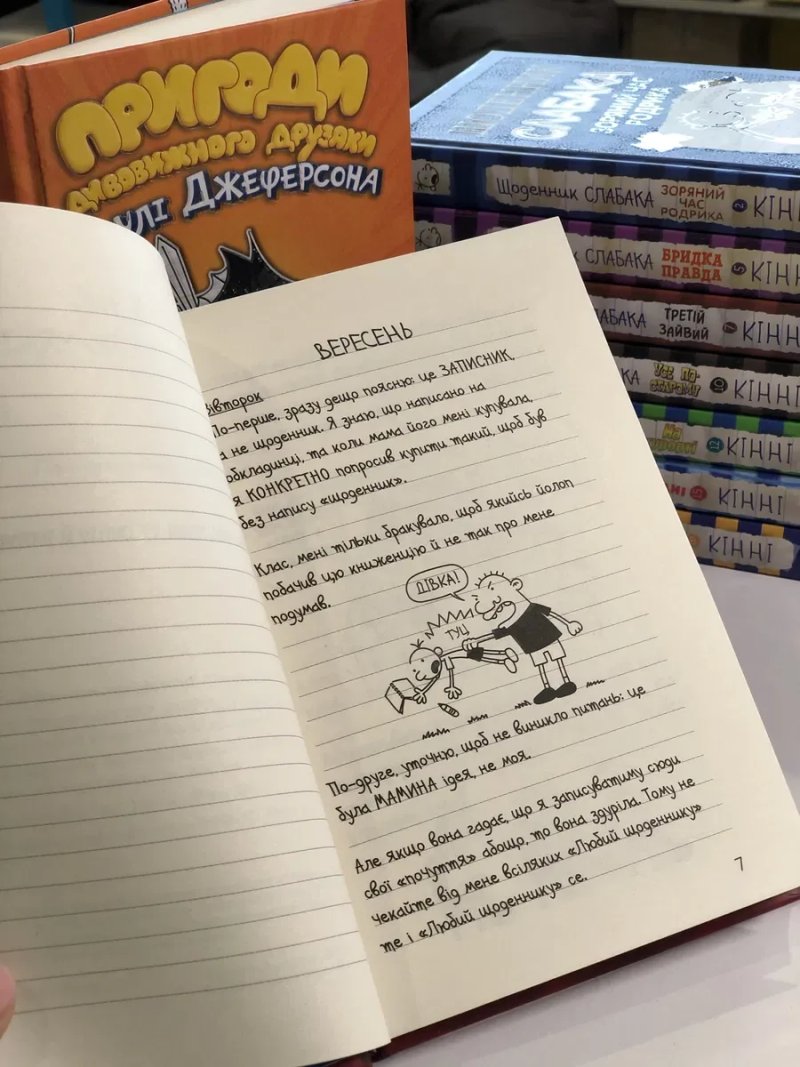 ПРИГОДИ
ДИВОВИЖНОГО ДРУЗЯКИ
ДЖЕФЕРСОНА
СЛАБАКА
ЗОРЯНИЙ ЧАС
РОДРИКА
Щоденник СЛАБАКА ЗОРЯНИЙ ЧАС РОДРИКА 2 КІНН
СЛАБАКА БРИДКА ПРАВДА 5 КІНН
ТРЕТІЙ ЗАЙВИЙ 7 КІНН
УСЕ ПО-СТАРОМУ 10 КІННІ
На 12 КІННІ
КІННІ
КІННІ
ВЕРЕСЕНЬ
івторок
По-перше, зразу дещо поясню: це ЗАПИСНИК,
а не щоденник. Я знаю, що написано на
обкладинці, та коли мама його мені купувала,
я КОНКРЕТНО попросив купити такий, щоб був
без напису «щоденник».
Клас, мені тільки бракувало, щоб якийсь йолоп
побачив цю книженцію й не так про мене
подумав.
ДІВКА!
ТУЦ
По-друге, уточню, щоб не виникло питань: це
була МАМИНА ідея, не моя.
Але якщо вона гадає, що я записуватиму сюди
свої «почуття» абощо, то вона здуріла. Тому не
чекайте від мене всіляких «Любий щоденнику»
те і «Любий щоденнику» се.
7